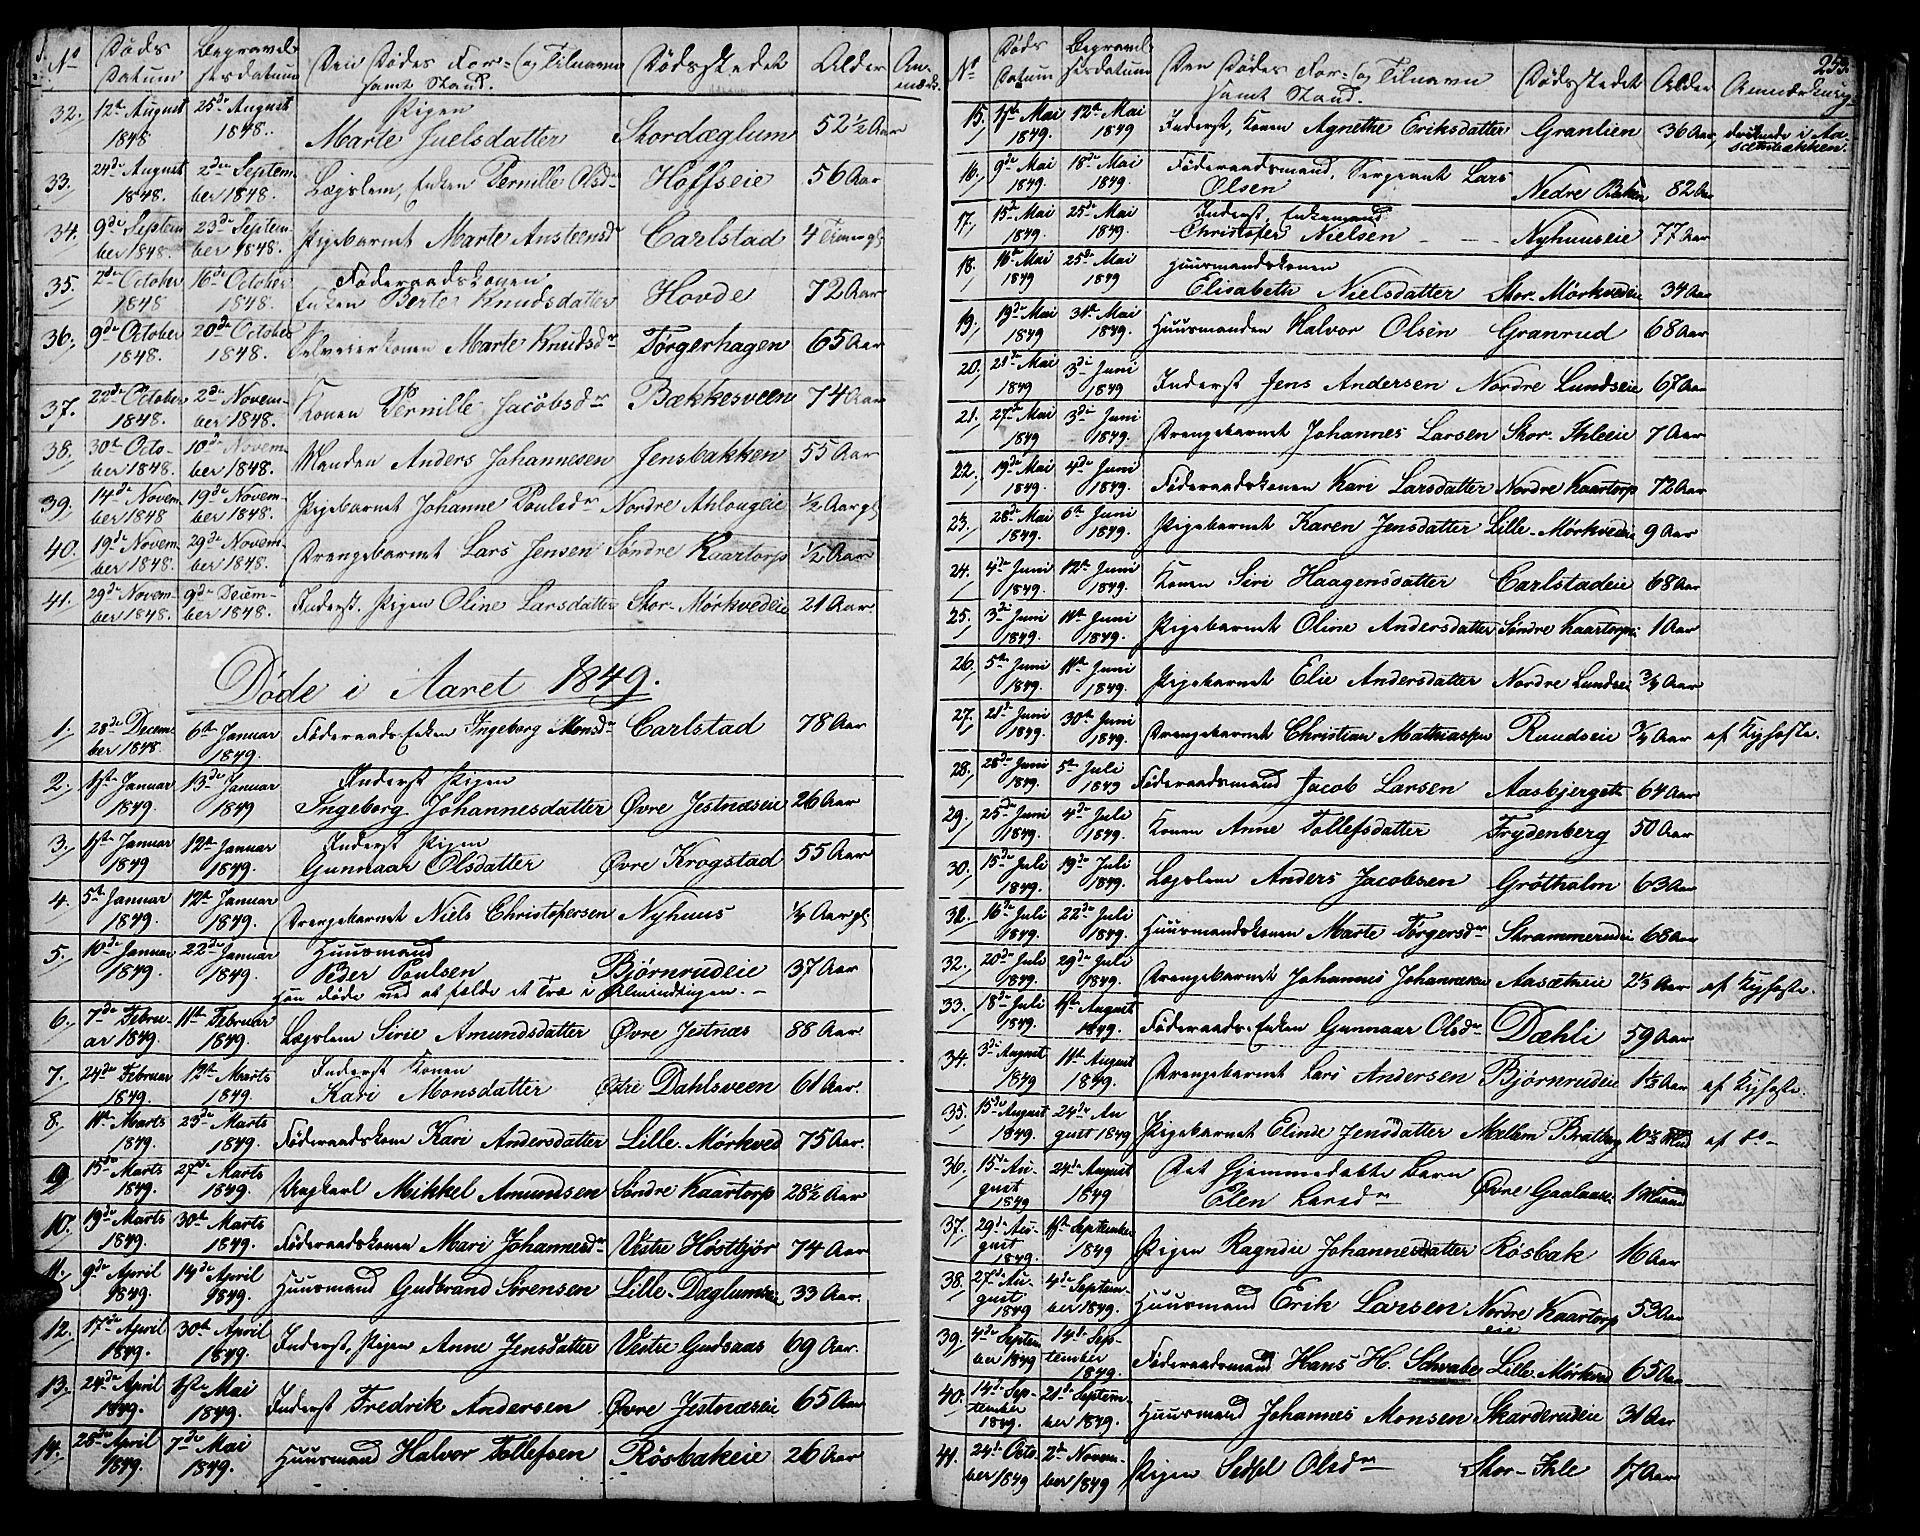 No Døds Datum Begravelsesdatum Den Dødes For- og Tilnavn samt Stand. Dødsstedet Alder Anmærk.
32. 12te August 1848 25de August 1848. Pigen Marte Juelsdatter Stordæglum 52 1/2 Aar
33. 24de August 1848. 2den September 1848. Lægslem, Enken Pernille Olsdr Hoffseie 56 Aar
34. 9de September 1848. 23de September 1848. Pigebarnet Marte Anstensdr Carlstad 4 Timer gl
35. 2de October 1848 16de October 1848. Føderaadskonen Enken Berte Knudsdatter Hovde 72 Aar
36. 9de October 1848. 20de October 1848. Selveierkonen Marte Knudsdr Torgerhagen 65 Aar
37. 22de October 1848. 2de November 1848. Konen Pernille Jacobsdr Bækkesveen 74 Aar
38. 30te October 1848. 10de November 1848. Manden Anders Johannesen Jensbakken 55 Aar
39. 14de November 1848 19de November 1848. Pigebarnet Johanne Poulsdr Nordre Ahlougeie 1/2 Aar gl
40. 19de November 1848. 29de November 1848. Drengebarnet Lars Jensen Søndre Kaartorp 1/2 Aar
41. 29de November 1848. 9de December 1848. Inderst. Pigen Oline Larsdatter Stor-Mørkvedeie 21 Aar.
Døde i Aaret 1849.
1. 28de December 1848 6te Januar 1849. Føderaads-Enken Ingeborg Monsdr Carlstad 78 Aar
2. 1ste Januar 1849. 13de Januar 1849 Inderst Pigen Ingeborg Johannesdatter Øvre Jestnæseie 26 Aar
3. 1ste Januar 1849 12te Januar 1849. Inderst Pigen Gunnaar Olsdatter Øvre Krogstad 55 Aar
4. 5te Januar 1849. 12te Januar 1849. Drengebarnet Niels Christophersen Nyhuus 1/4 Aar gl
5. 10de Januar 1849. 22de Januar 1849. Huusmand Peer Poulsen Bjørnrudeie 37 Aar
han døde ved at fælde et Træ i Almindingen. -
6. 7de Februar 1849. 11te Februar 1849. Lægslem Sirie Amundsdatter Øvre Jestnæs 88 Aar
7. 24de Februar 1849. 12te Marts 1849. Inderst Konen Kari Monsdatter Østre Dahlsveen 61 Aar.
8. 11te Marts 1849. 23de Marts 1849. Føderaadskone Kari Andersdatter Lille-Mørkved 75 Aar.
9. 15de Marts 1849. 27de Marts 1849. Ungkarl Mikkel Amundsen Søndre Kaartorp 28 1/2 Aar
10. 19de Marts 1849. 30te Marts 1849. Føderaadskonen Mari Johannesdr Vestre Høstbjør 74 Aar
11. 9de April 1849. 14de April 1849. Huusmand Gudbrand Sørensen Lille-Dæglumseie 33 Aar.
12. 17de April 1849. 30te April 1849. Inderst, Pigen Anne Jensdatter Vestre Gudsaas 69 Aar.
13. 24de April 1849. 1ste Mai 1849. Inderst Fredrik Andersen Øvre Jestnæseie 65 Aar
14. 28de April 1849. 7de Mai 1849. Huusmand Halvor Tollefsen Røsbakeie 26 Aar
253.
No Døds Datum Begravelsesdatum Den Dødes For- og Tilnavn samt Stand. Dødsstedet Alder Anmærkning.
15. 1ste Mai 1849. 12te Mai 1849 Inderst, Konen Agnethe Eriksdatter Granlien 36 Aar, druknede i
16. 9de Mai 1849. 18de Mai 1849. Føderaadsmand, Sergeant Lars Olsen Nedre Bakken 82 Aar
17. 15de Mai 1849. 25de Mai 1849. Inderst, Enkemand Christofer Nielsen - - Nyhuuseie 77 Aar
18. 16de Mai 1849 25de Mai 1849 Huusmandskonen Elisabeth Nielsdatter Stor-Mørkvedeie 34 Aar
19. 19de Mai 1849 31te Mai 1849. Huusmanden Halvor Olsen Granrud 68 Aar
20. 21de Mai 1849 3de Juni 1849 Inderst Jens Andersen Nordre Lundseie 67 Aar
21. 27de Mai 1849 3de Juni 1849. Drengebarnet Johannes Larsen Stor-Ihleeie 7 Aar
22. 19de Mai 1849. 4de Juni 1849. Føderaadskonen Kari Larsdatter Nordre Kaartorp 72 Aar
23. 28de Mai 1849. 6te Juni 1849. Pigebarnet Karen Jensdatter Lille-Mørkvedeie 9 Aar
24. 4de Juni 1849. 12te Juni 1849. Konen Siri Haagensdatter Carlstadeie 68 Aar
25. 3de Juni 1849. 11te Juni 1849. Pigebarnet Oline Andersdatter Søndre Kaartorp 1 Aar
26. 5te Juni 1849. 11te Juni 1849. Pigebarnet Elie Andersdatter Nordre Lundseie 3/4 Aar
27. 21de Juni 1849. 30te Juni 1849. Drengebarnet Christian Mathiassen Ruudseie 3/4 Aar af Kighoste.
28. 28de Juni 1849. 5te Juli 1849 Føderaadsmand Jacob Larsen Aasbjerget 64 Aar
29. 25de Juni 1849. 4de Juli 1849. Konen Anne Tollefsdatter Frydenberg 50 Aar
30. 15de Juli 1849. 19de Juli 1849. Lægslem Anders Jacobsen Grøtholm 63 Aar
31. 16de Juli 1849. 22de Juli 1849. Huusmandskonen Marte Torgersdr Strammerudeie 68 Aar
32. 20de Juli 1849. 29de Juli 1849. Drengebarnet Johannes Johannesen Aasætheie 2 1/2 Aar af Kighoste.
33. 18de Juli 1849. 1ste August 1849. Føderaads-Enken Gunnaar Olsdr Dæhli 59 Aar
34. 3de August 1849 11te August 1849. Drengebarnet Lars Andersen Bjørnrudeie 1 1/2 Aar af Kighoste.
35. 15de August 1849. 24de August 1849 Pigebarnet Elinde Jensdatter Mellem Bratberg af do -
36. 15de August 1849 24de August 1849 Det hjemmedøbte Barn Elen Larsdr Øvre 1 Maaned
37. 29de August 1849. 11te September 1849 Pigen Ragndie Johannesdatter Røsbak 16 Aar
38. 27de August 1849 4de September 1849. Huusmand Erik Larsen Nordre Kaartorp eie 53 Aar
39. 4de September 1849 14de September 1849. Føderaadsmand Hans H. Schwabe Lille Mørkved 65 Aar
40. 14de September 1849. 21de September 1849. Huusmand Johannes Monsen Skarderudeie 31 Aar
41. 24de October 1849 2de November 1849. Pigen Sedsel Olsdr Stor-Ihle 17 Aar